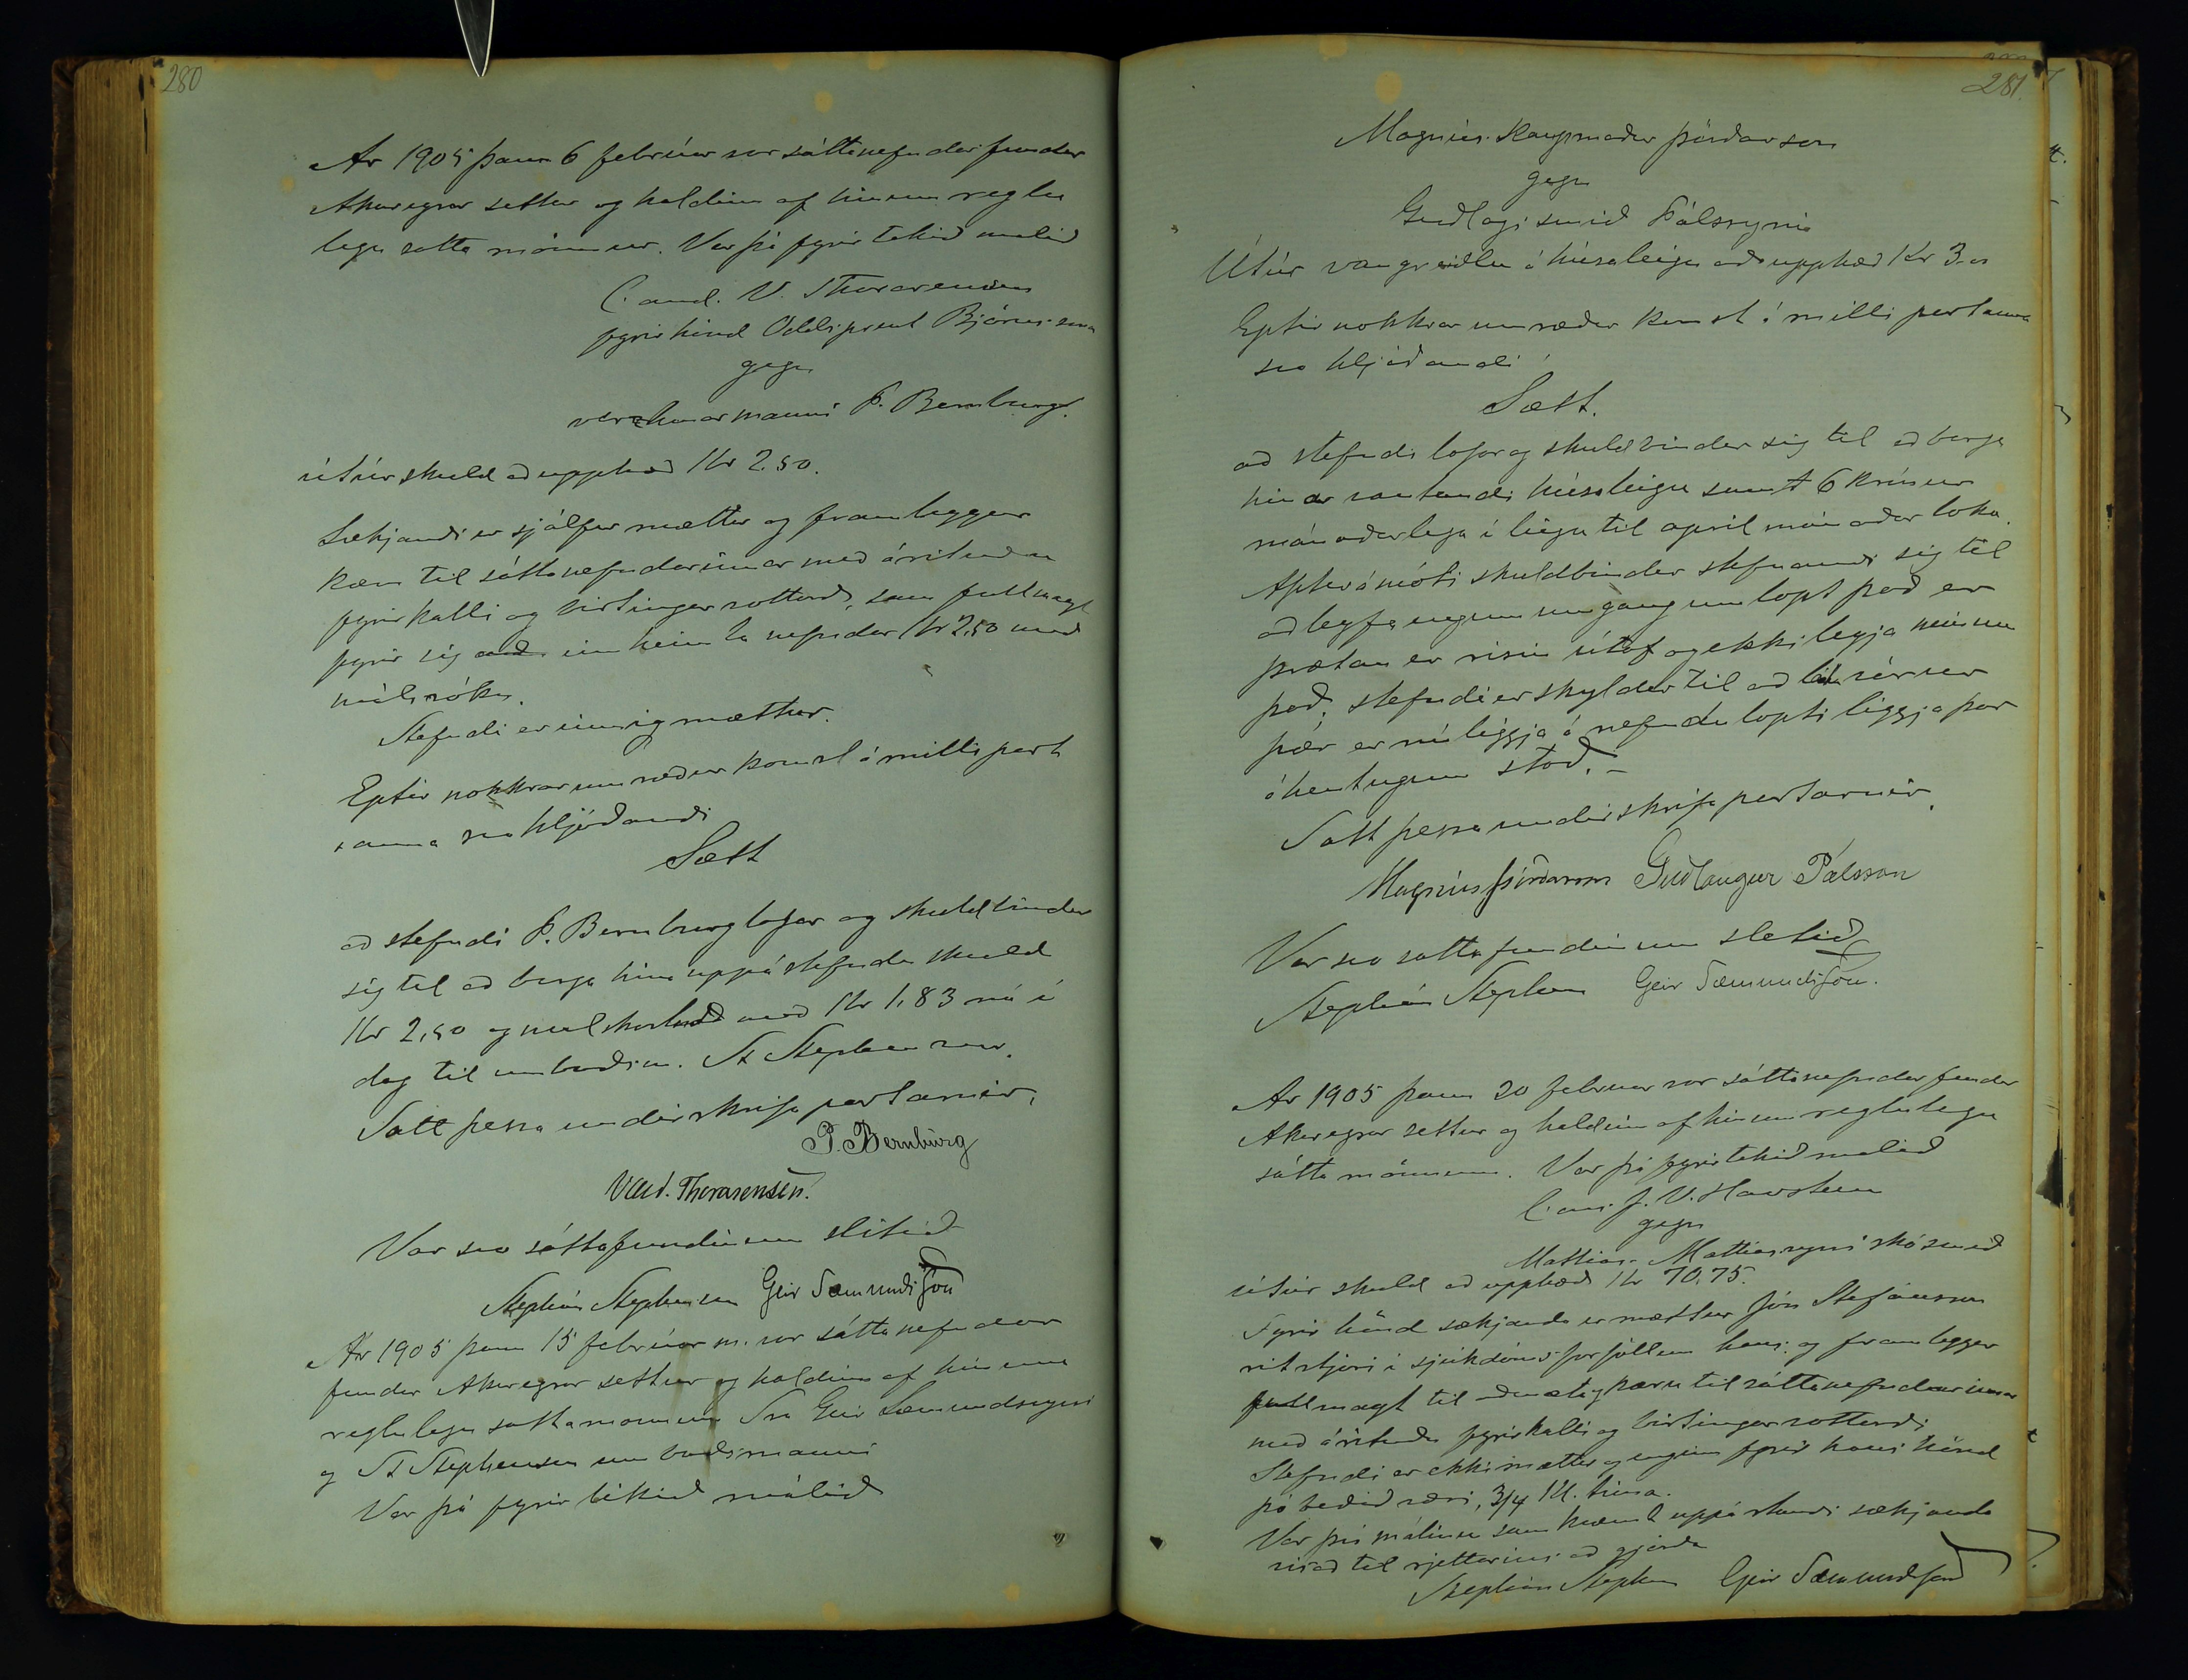 280
Ár 1905 þann 6 febrúar var sáttanefndar fundur
Akureyrar settur og haldinn af hinum reglu
legu sátta mönnum. Var þá fyrir tekið málið
Cand. V. Thorarensen
fyrir hönd Odds prent Björnssonar
gegn
verzlunarmanni P. Bernburg.
útúr skuld að upphæð Kr 2.50.
Sækjandi er sjálfur mættur og framleggur
kæru til sáttanefndarinnar með árituðu
fyrirkalli og birtingarvottorði, sem fullmagt
fyrir sig að innheimta nefndar Kr 2,50 með
málsókn.
Stefndi er einnig mættur.
Eptir nokkrar umræður komst á milli part
anna svo hljóðandi
Sætt
að stefndi P. Bernburg lofar og skuldbindur
sig til að borga hina uppástefndu skuld
Kr 2,50 og málskostnað með Kr 1,83 nú í
dag til umboðsm. St Stephensen.
Sátt þessa undirskrifa partarnir,
P. Bernburg
Vald. Thorarensen.
Var svo sáttafundinum slitið
Stephán Stephensen Geir Sæmundsson
Ár 1905 þann 15 febrúar m. var sáttanefndar
fundur Akureyrar settur og haldinn af hinum
reglulegu sáttamönnum Sra Geir Sæmundssyni
og St Stephensen umboðsmanni
Var þá fyrir tekið málið
281.
Magnús Kaupmaður Þórðarson
gegn
Guðlaugi smið Pálssyni
Útúr vangreiðslu á húsaleigu að upphæð Kr 3.
Eptir nokkrar umræður komst á milli partanna
svo hljóðandi
Sætt.
að stefndi lofar og skuldbindur sig til að borga
hinar vantandi húsaleigu samt 6 krónur
mánaðarlega í leigu til april mánaðar loka.
Aptur á móti skuldbindur stefnandi sig til
að leyfa engum umgang um lopt það er
þrætan er risin útaf og ekki legja minnu
það, stefndi er skyldur til að láta vörur
þær er nú liggja á nefndu lopti liggja þar
á hentugum stað. –
Sátt þessa undirskrifa partarnir.
Magnús Þórðarson Guðlaugur Pálsson
Var svo sáttafundinum slitið
Stephán Stephensen Geir Sæmundsson.
Ár 1905 þann 20 februar var sáttanefndar fundur
Akureyrar settur og haldinn af hinum reglulegu
sátta mönnum. Var þá fyrirtekið málið
J. V. Havsteen
gegn
Mattias Mattiassyni skósmið
útúr skuld að upphæð Kr 70.75.
Fyrir hönd sækjanda er mættur Jón Stefánsson
ritstjóri í sjúkdóms forföllum hans og framlegger
fullmagt til að mæta og kæru til sáttanefndarinnar
með árituðu fyrirkalli og birtingarvottorði
Stefndi er ekki mættur og enginn fyrir hans hönd
þó beðið væri, 3/4 Kl. tima.
Var því málinu samkvæmt uppástandi sækjanda
vísað til rjettarins að gjörða
Stephán Stephensen Geir Sæmundsson